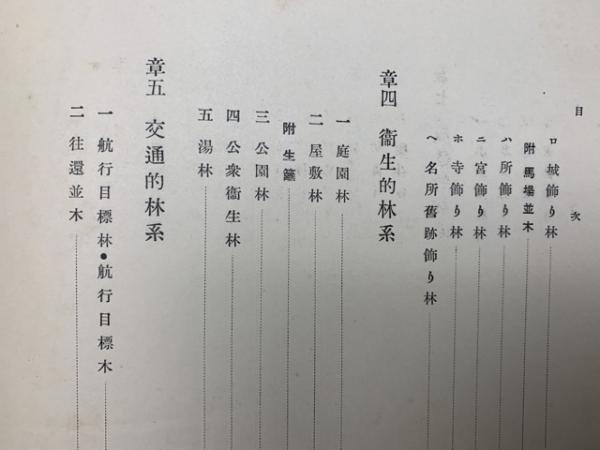 目次
ロ 城飾り林
附 馬場並木
ハ 所飾り林
ニ 宮飾り林
ホ 寺飾り林
ヘ 名所舊跡飾り林
章四 衞生的林系
一 庭園林
二 屋敷林
附 生籬
三 公園林
四 公衆衞生林
五 湯林
章五 交通的林系
一 航行目標林・航行目標木
二 往還並木